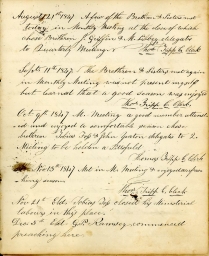 August 21st 1847 A few of the Brethren & Sisters met
today in Monthly Meeting at the close of which
chose Brethren J. Griffin & M. delegates
to Quarterly Meeting. Thos. Tripp C. Clerk
Sept. 11th 1847 The Brethren & Sisters met again
in Monthly Meeting was not present myself
but learned that a good season was enjoyed
Thos. Tripp C. Clerk
Oct 9th 1847 Mt. Meeting a good number attend-
ed and enjoyed a comfortable season chose
brethren Tobias & John Gates delegates to 2.
Meeting to be holden in
Thomas Tripp C. Clerk
Nov 13th 1847 Met in M. Meeting & enjoyed a refresh-
ing season
Thos. Tripp C. Clerk
Nov 21st Eld. closed his Ministerial
labours in this place.
Dec 5th Eld. G. P. Ramsey commenced
preaching here